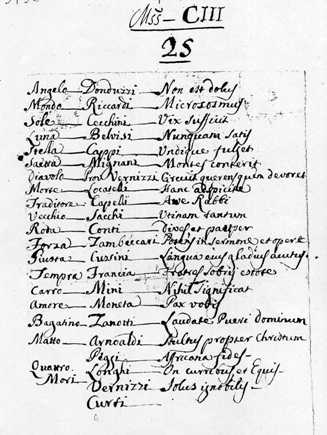 Mss – CIII
25
Angelo — Donduzzi — Non est dolus
Mondo — Riccardi — Micrososmus
Sole — Cecchini — Vix sufficit
Luna — Belvisi — Nunquam satis
Stella — Cappi — Undique fulget
Saetta — Mignani — Montes conterit
Diavolo — Vernizzi — Circuit querens quem devoret
Morte — Locatelli — Hanc aspicite
Traditore — Capelli — Ave Rabbi
Vecchio — Sacchi — Utinam tantum
Rota — Conti — Dives et pauper
Forza — Zambeccari — Potens in sermone et opere
Giusta — Custini — Lingua eius gladius acutus
Tempra — Francia — Fratres sobrii estote
Carro — Mini — Nihil significat
Amore — Moneta — Pax vobis
Bagatino — Zanotti — Laudate Pueri dominum
Matto — Arnoaldi — Stultus propter Christum
Peggi — Africana fides
Quattro Mori — Longhi — On curibus et Equis
Vernizzi — Solus ignobilis
Curti